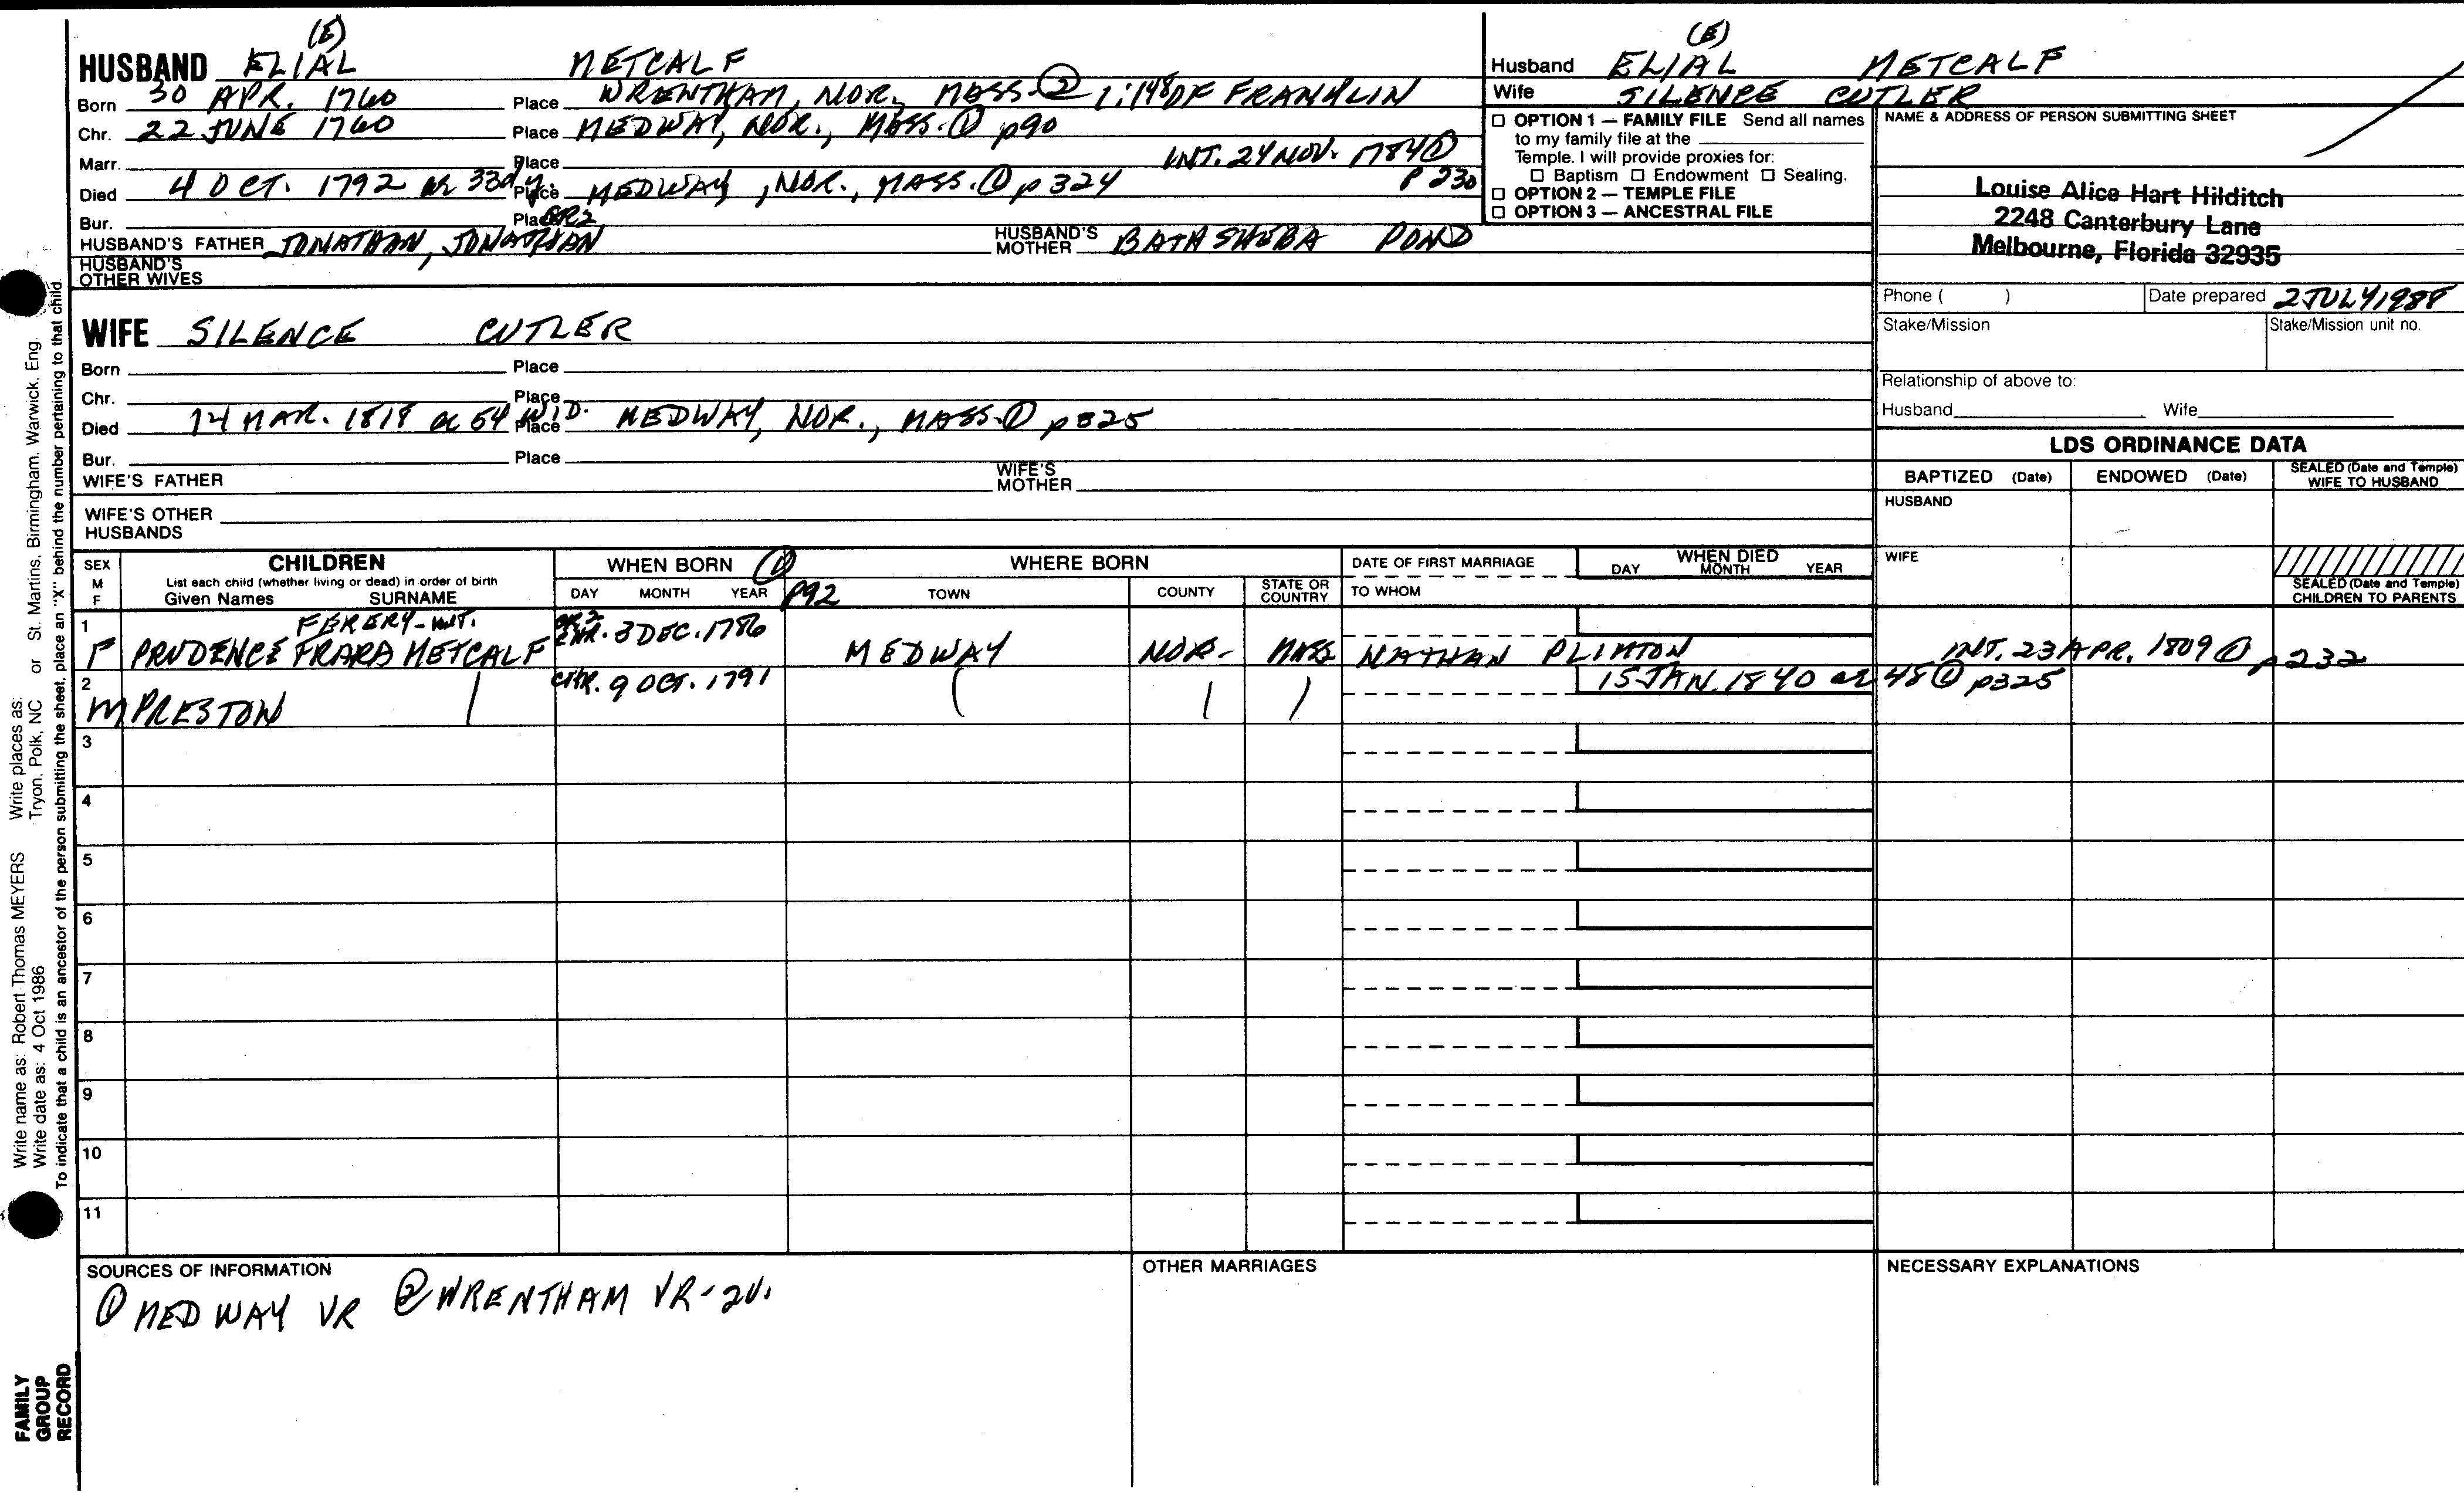 (E)
HUSBAND ELIAL METCALF
Born 30 APR. 1760 Place WRENTHAM, NOR., MASS. ② 1:148 OF FRANKLIN
Chr. 22 JUNE 1760 Place MEDWAY, NOR., MASS. ① p90
Marr. Place INT. 24 NOV. 1784 ①
Died 4 OCT. 1792 ae 33d y. Place MEDWAY, NOR., MASS. ① p324 P 230
Bur. Place GR2
HUSBAND'S FATHER JONATHAN, JONATHAN HUSBAND'S MOTHER BATHSHEBA POND
HUSBAND'S OTHER WIVES
WIFE SILENCE CUTLER
Born Place
Chr. Place
Died 14 MAR. 1818 ae 54 WID. Place MEDWAY, NOR., MASS. ① p325
Bur. Place
WIFE'S FATHER WIFE'S MOTHER
WIFE'S OTHER HUSBANDS
(E)
Husband ELIAL METCALF
Wife SILENCE CUTLER
OPTION 1 — FAMILY FILE Send all names
to my family file at the
Temple. I will provide proxies for:
Baptism Endowment Sealing.
OPTION 2 — TEMPLE FILE
OPTION 3 — ANCESTRAL FILE
NAME & ADDRESS OF PERSON SUBMITTING SHEET
Louise Alice Hart Hilditch
2248 Canterbury Lane
Melbourne, Florida 32935
Phone ( ) Date prepared 2 JULY 1988
Stake/Mission Stake/Mission unit no.
Relationship of above to:
Husband Wife
LDS ORDINANCE DATA
BAPTIZED (Date) ENDOWED (Date) SEALED (Date and Temple) WIFE TO HUSBAND
HUSBAND
WIFE
SEALED (Date and Temple) CHILDREN TO PARENTS
SEX M F
CHILDREN
List each child (whether living or dead) in order of birth
Given Names SURNAME
WHEN BORN ①
DAY MONTH YEAR P92
WHERE BORN
TOWN COUNTY STATE OR COUNTRY
DATE OF FIRST MARRIAGE
TO WHOM
WHEN DIED
DAY MONTH YEAR
1 FERERY-INT. GR2
F PRUDENCE FRARA METCALF CHR. 3 DEC. 1786 MEDWAY NOR. MASS NATHAN PLIMTON INT. 23 APR. 1809 ① p232
2 CHR. 9 OCT. 1791 15 JAN. 1840 ae 48 ① p325
M PRESTON
3
4
5
6
7
8
9
10
11
SOURCES OF INFORMATION
① MEDWAY VR ② WRENTHAM VR-2V.
OTHER MARRIAGES
NECESSARY EXPLANATIONS
Write places as: Tryon, Polk, NC or St. Martins, Birmingham, Warwick, Eng.
Write name as: Robert Thomas MEYERS
Write date as: 4 Oct 1986
To indicate that a child is an ancestor of the person submitting the sheet, place an "X" behind the number pertaining to that child.
FAMILY
GROUP
RECORD